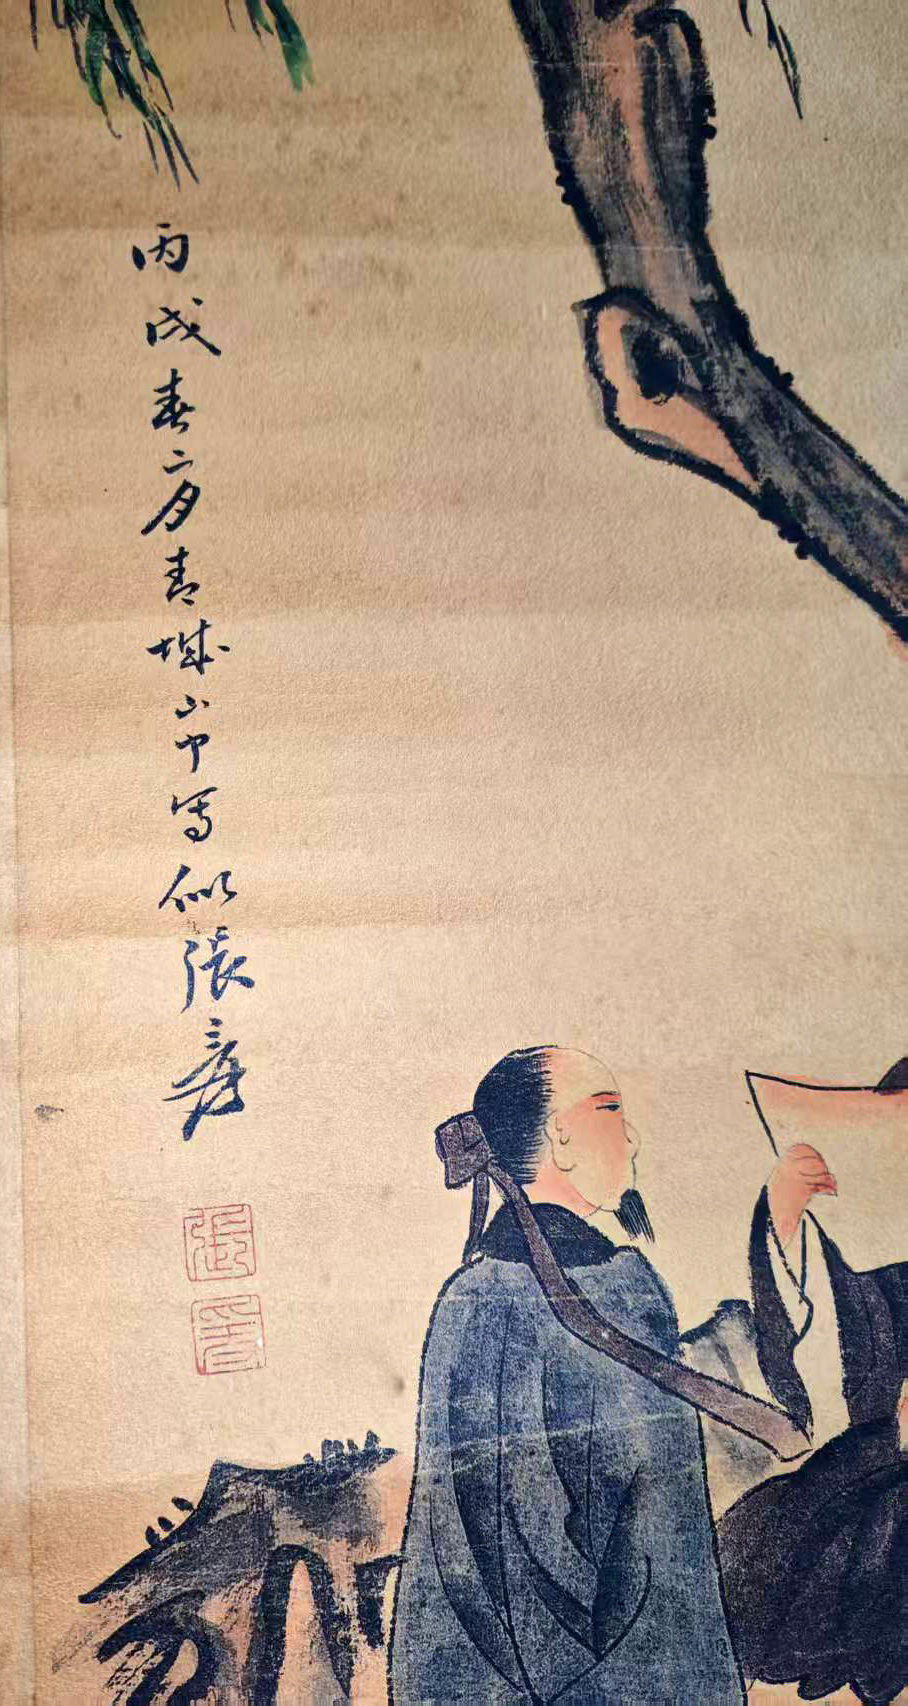 丙戌春二月青城山中寫似張爰
張